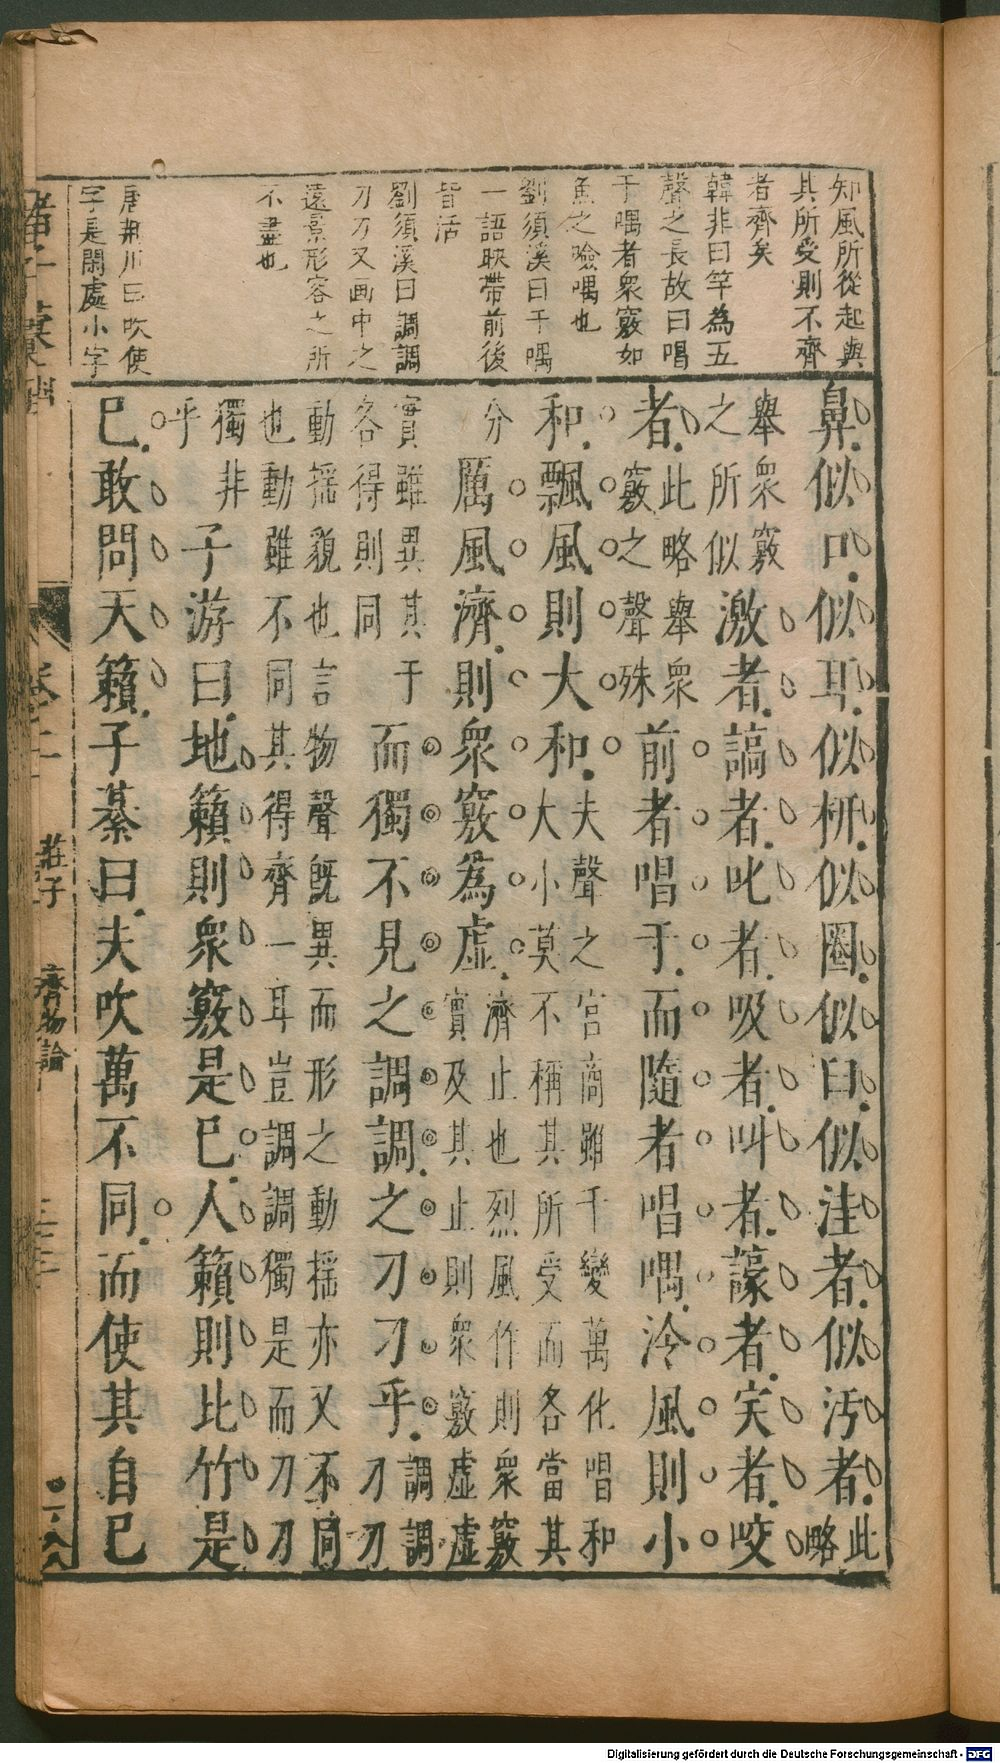 知風所從起與
其所受則不齊
者齊矣
韓非曰竽為五
聲之長故曰唱
于喁者衆竅如
魚之噞喁也
劉須溪曰于喁
一語映帶前後
皆活
劉須溪曰調調
刀刀又画中之
遠景形容之所
不盡也
唐荆川曰吹使
字是閑處小字
鼻似口似耳似枅似圈似臼似洼者似汚者此略
舉衆竅之所似激者謞者叱者吸者叫者譹者宎者咬
者此略舉衆竅之聲殊前者唱于而隨者唱喁泠風則小
和飄風則大和夫聲之宮商雖千變萬化唱和大小莫不稱其所受而各當其
分厲風濟則衆竅為虛濟止也烈風作則衆竅實及其止則衆竅虛虛
實雖異其于各得則同而獨不見之調調之刁刁乎調調刀刀
動揺貌也言物聲旣異而形之動揺亦又不同也動雖不同其得齊一耳豈調調獨是而刀刀
獨非乎子游曰地籟則衆竅是巳人籟則比竹是
巳敢問天籟子綦曰夫吹萬不同而使其自巳
諸子彙函
卷之二
莊子 齊物論